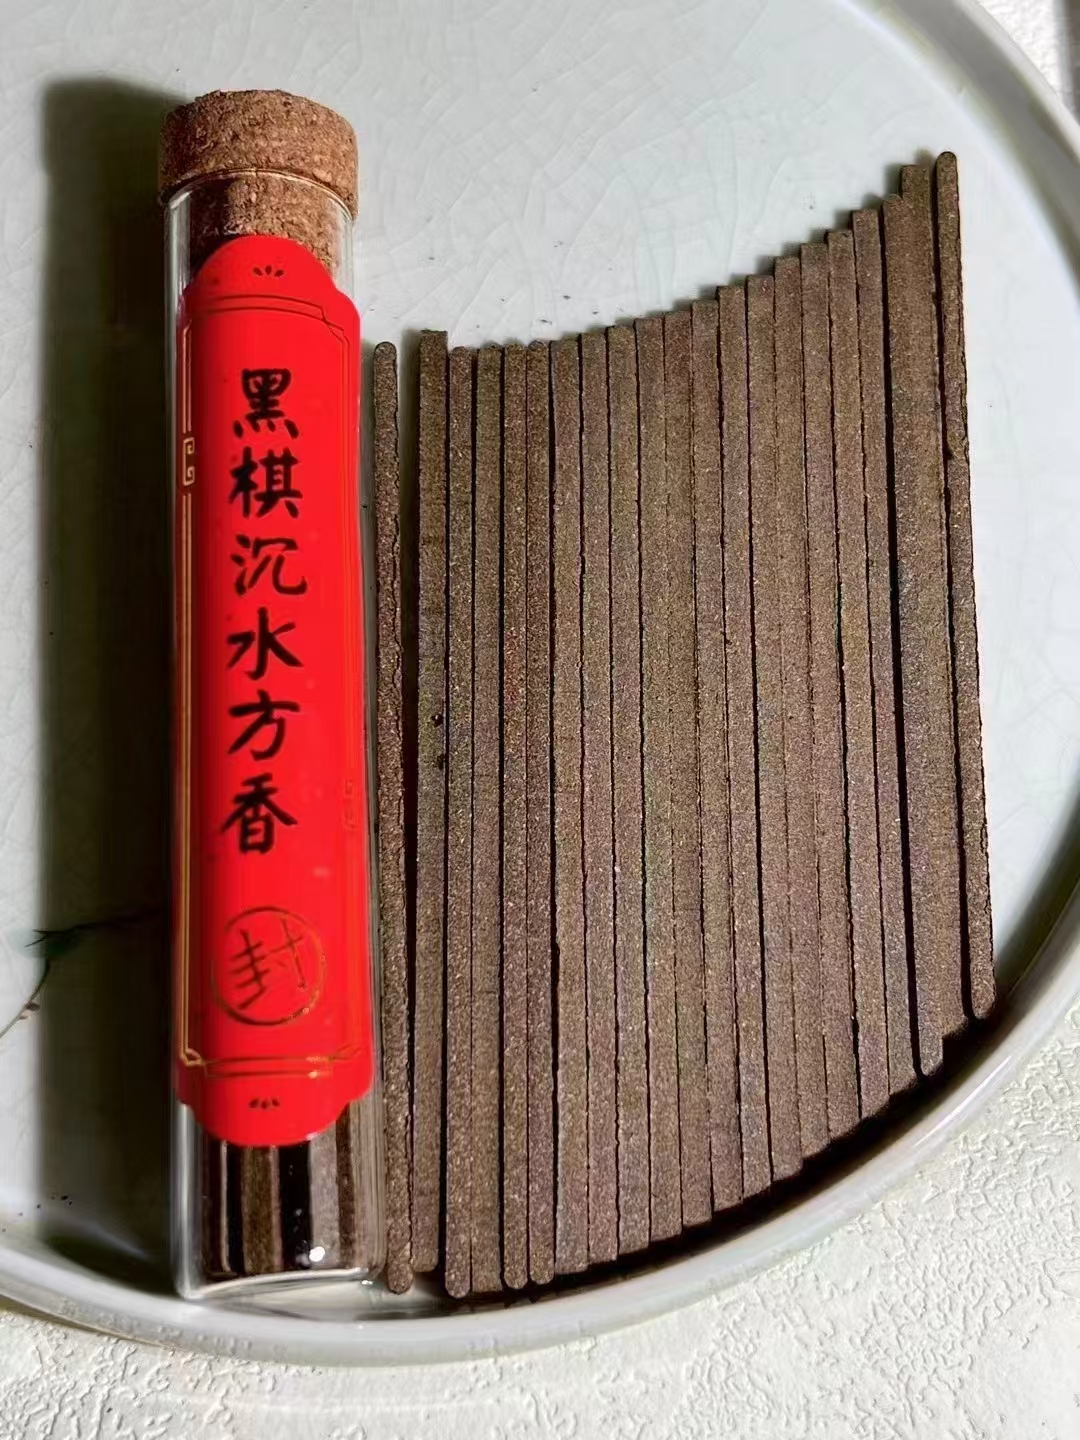 黑棋沉水方香
封